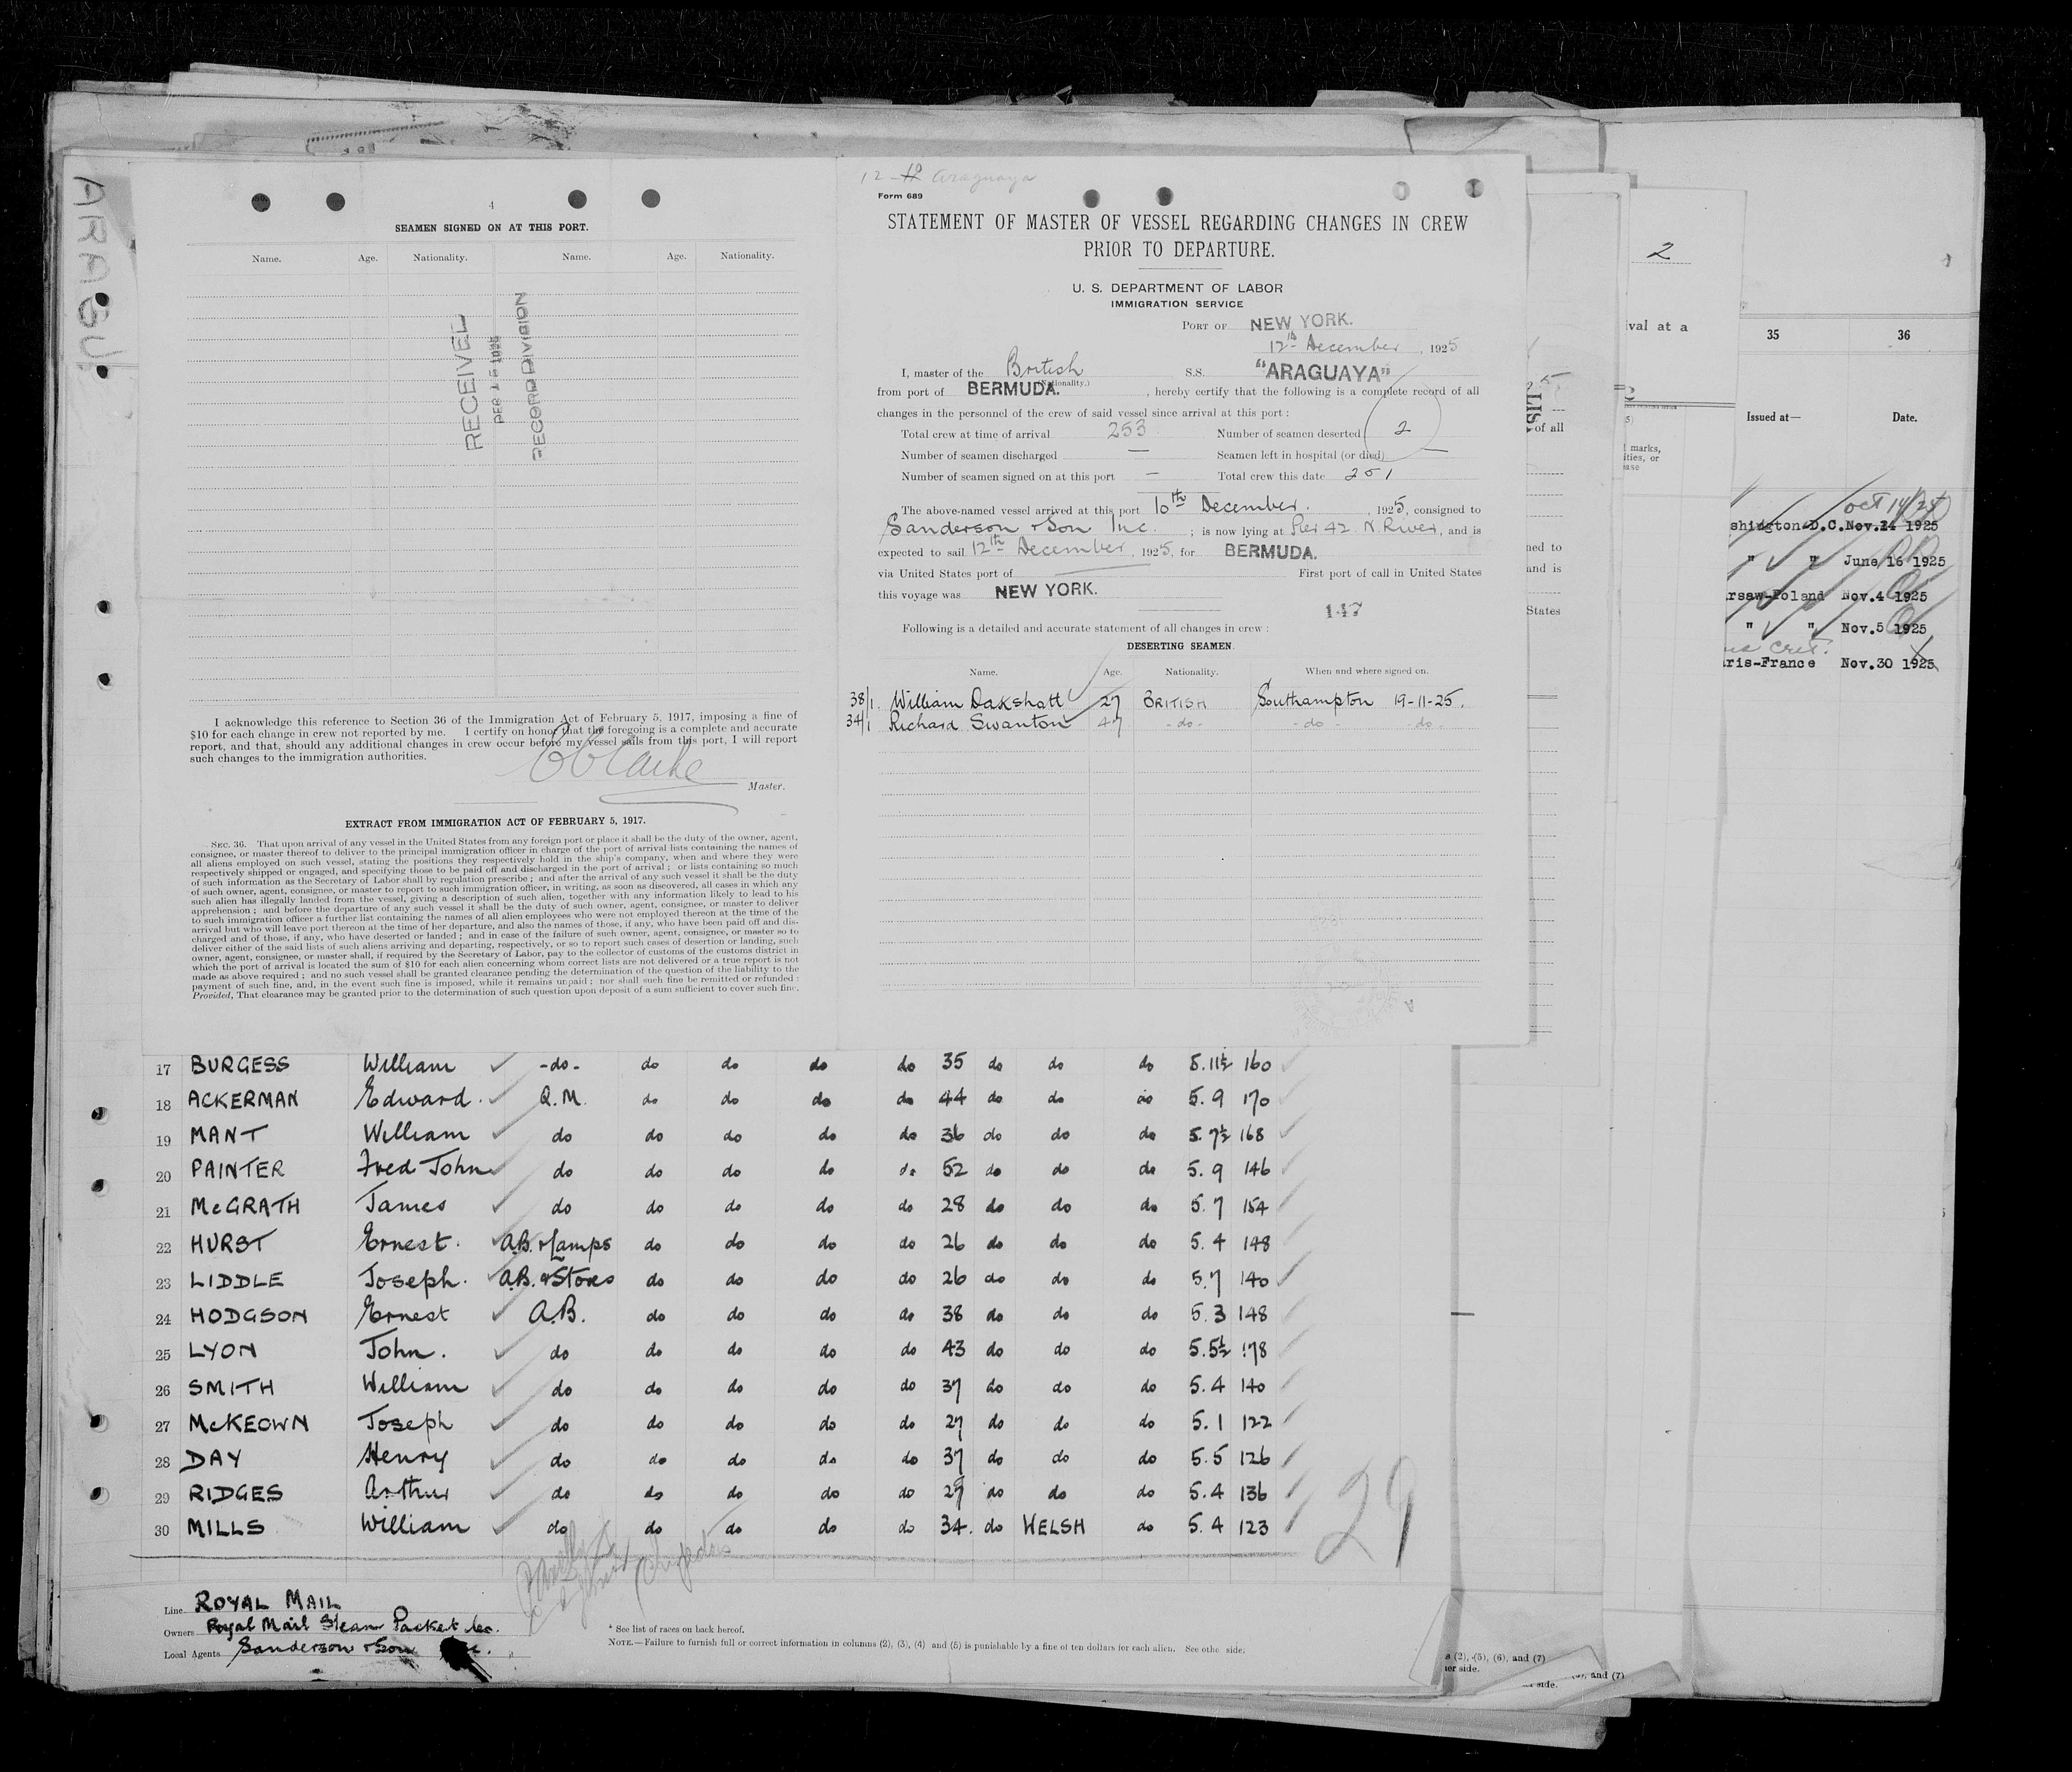 ARAGU
4
SEAMEN SIGNED ON AT THIS PORT.
Name. Age. Nationality. Name. Age. Nationality.
RECEIVED
DEC 15 1925
RECORD DIVISION
I acknowledge this reference to Section 36 of the Immigration Act of February 5, 1917, imposing a fine of
$10 for each change in crew not reported by me. I certify on honor that the foregoing is a complete and accurate
report, and that, should any additional changes in crew occur before my vessel sails from this port, I will report
such changes to the immigration authorities.
Master.
EXTRACT FROM IMMIGRATION ACT OF FEBRUARY 5, 1917.
SEC. 36. That upon arrival of any vessel in the United States from any foreign port or place it shall be the duty of the owner, agent,
consignee, or master thereof to deliver to the principal immigration officer in charge of the port of arrival lists containing the names of
all aliens employed on such vessel, stating the positions they respectively hold in the ship's company, when and where they were
respectively shipped or engaged, and specifying those to be paid off and discharged in the port of arrival; or lists containing so much
of such information as the Secretary of Labor shall by regulation prescribe; and after the arrival of any such vessel it shall be the duty
of such owner, agent, consignee, or master to report to such immigration officer, in writing, as soon as discovered, all cases in which any
such alien has illegally landed from the vessel, giving a description of such alien, together with any information likely to lead to his
apprehension; and before the departure of any such vessel it shall be the duty of such owner, agent, consignee, or master to deliver
to such immigration officer a further list containing the names of all alien employees who were not employed thereon at the time of the
arrival but who will leave port thereon at the time of her departure, and also the names of those, if any, who have been paid off and dis-
charged and of those, if any, who have deserted or landed; and in case of the failure of such owner, agent, consignee, or master so to
deliver either of the said lists of such aliens arriving and departing, respectively, or so to report such cases of desertion or landing, such
owner, agent, consignee, or master shall, if required by the Secretary of Labor, pay to the collector of customs of the customs district in
which the port of arrival is located the sum of $10 for each alien concerning whom correct lists are not delivered or a true report is not
made as above required; and no such vessel shall be granted clearance pending the determination of the question of the liability to the
payment of such fine, and, in the event such fine is imposed, while it remains unpaid; nor shall such fine be remitted or refunded:
Provided, That clearance may be granted prior to the determination of such question upon deposit of a sum sufficient to cover such fine.
12 - 12 Araguaya
Form 689
STATEMENT OF MASTER OF VESSEL REGARDING CHANGES IN CREW
PRIOR TO DEPARTURE.
U. S. DEPARTMENT OF LABOR
IMMIGRATION SERVICE
PORT OF NEW YORK.
12th December, 1925
I, master of the British S.S. "ARAGUAYA"
(Nationality.)
from port of BERMUDA. , hereby certify that the following is a complete record of all
changes in the personnel of the crew of said vessel since arrival at this port:
Total crew at time of arrival 253 Number of seamen deserted 2
Number of seamen discharged — Seamen left in hospital (or died) —
Number of seamen signed on at this port — Total crew this date 251
The above-named vessel arrived at this port 10th December. , 1925, consigned to
Sanderson & Son Inc. ; is now lying at Pier 42 N. River, and is
expected to sail 12th December, 1925, for BERMUDA.
via United States port of First port of call in United States
this voyage was NEW YORK.
147
Following is a detailed and accurate statement of all changes in crew:
DESERTING SEAMEN.
Name. Age. Nationality. When and where signed on.
38/1. William Oakshatt 27 BRITISH Southampton 19-11-25.
34/1 Richard Swanton 47 -do- -do- -do-
17 BURGESS William -do- do do do do 35 do do do 5.11½ 160
18 ACKERMAN Edward. Q.M. do do do do 44 do do do 5.9 170
19 MANT William do do do do do 36 do do do 5.7½ 168
20 PAINTER Fred John do do do do do 52 do do do 5.9 146
21 McGRATH James do do do do do 28 do do do 5.7 154
22 HURST Ernest. A.B. & Lamps do do do do 26 do do do 5.4 148
23 LIDDLE Joseph. A.B. & Stores do do do do 26 do do do 5.7 140
24 HODGSON Ernest A.B. do do do do 38 do do do 5.3 148
25 LYON John. do do do do do 43 do do do 5.5½ 178
26 SMITH William do do do do do 37 do do do 5.4 140
27 McKEOWN Joseph do do do do do 27 do do do 5.1 122
28 DAY Henry do do do do do 37 do do do 5.5 126
29 RIDGES Arthur do do do do do 29 do do do 5.4 136
30 MILLS William do do do do do 34. do WELSH do 5.4 123
29
Line ROYAL MAIL
Owners Royal Mail Steam Packet Co.
Local Agents Sanderson & Son
* See list of races on back hereof.
NOTE.—Failure to furnish full or correct information in columns (2), (3), (4) and (5) is punishable by a fine of ten dollars for each alien. See othe side.
of all
ned to
and is
States
s (2), (5), (6), and (7)
er side.
and (7)
side.
2
ival at a
marks,
ities, or
ease
35 36
Issued at— Date.
Oct 14/24
shington-D.C. Nov.24 1925
" " June 16 1925
rsaw-Poland Nov.4 1925
" " Nov.5 1925
ris-France Nov.30 1925